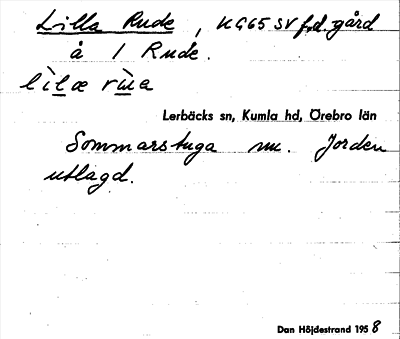 Lilla Rude, KG65SV f.d. gård
å 1 Rude.
lìlæ rùa
Lerbäcks sn, Kumla hd, Örebro län
Sommarstuga nu. Jorden
utlagd.
Dan Höjdestrand 1958